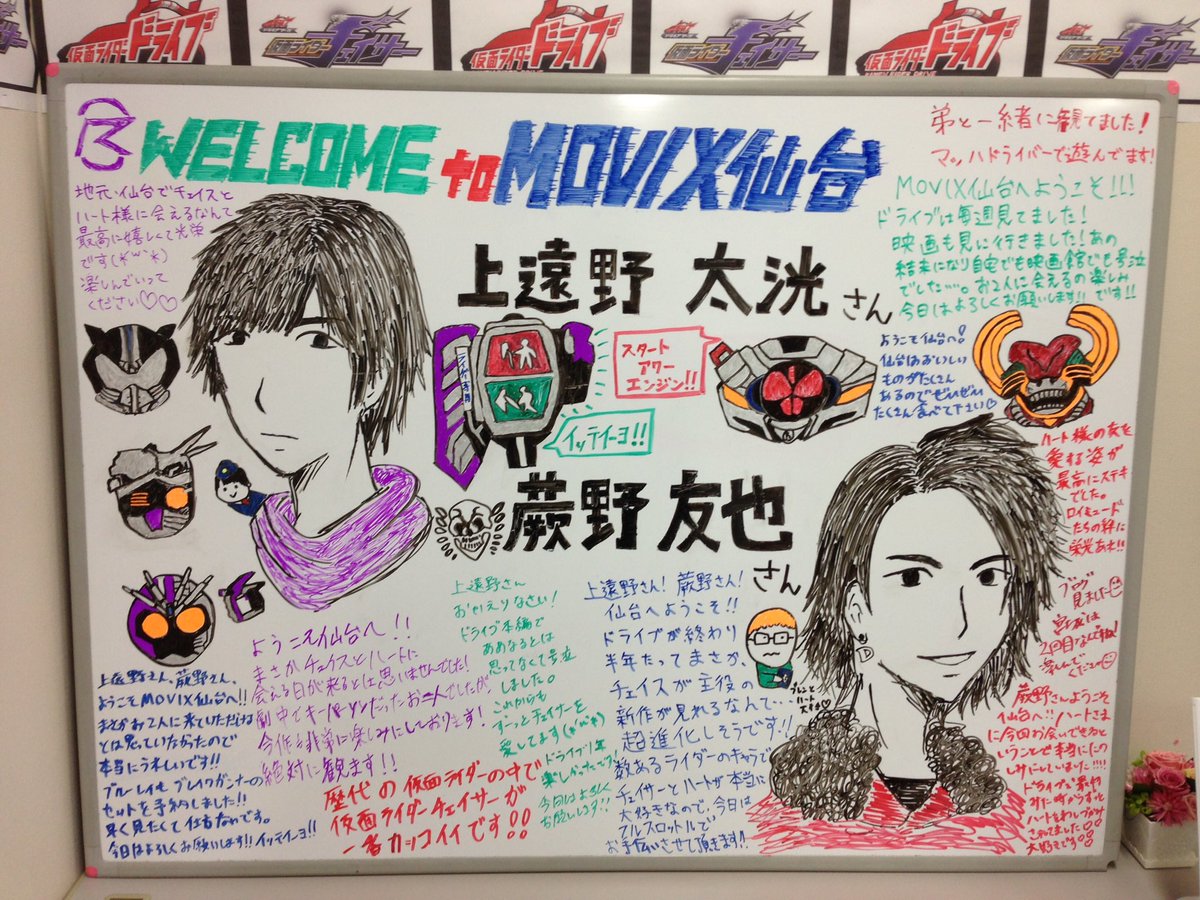 仮面ライダードライブ
仮面ライダーチェイサー
仮面ライダードライブ
仮面ライダーチェイサー
仮面ライダードライブ
仮面ライダーチェイサー
WELCOME to MOVIX仙台
地元・仙台でチェイスと
ハート様に会えるなんて
最高に嬉しくて光栄
です(*´ω`*)
楽しんでいって
ください♡♡
弟と一緒に観てました!
マッハドライバーで遊んでます!
MOVIX仙台へようこそ!!!
ドライブは毎週見てました!
映画も見に行きました!あの
結末になり自宅でも映画館でも号泣
でした…。お2人に会えるの楽しみ
です!!
今日はよろしくお願いします!!
上遠野 太洸さん
スタート
アワー
エンジン!!
イッテイーヨ!!
ようこそ仙台へ!
仙台はおいしい
ものがたくさん
あるのでぜひぜひ
たくさん食べて下さい♡
ハート様の友を
愛する姿が
最高にステキ
でした。
ロイミュード
たちの絆に
栄光あれ!!
蕨野 友也さん
ブログ
見ました
宮城は
2回目なんですね!
上遠野さん
おかえりなさい!
ドライブ本編で
ああなるとは
思ってなくて号泣
しました。
これからも
ずーっとチェイサーを
愛してます
ドライブ1年
楽しかったです
今日はよろしく
お願いします!!
上遠野さん!蕨野さん!
仙台へようこそ!!
ドライブが終わり
半年たってまさか、
チェイスが主役の
新作が見れるなんて…
超進化しそうです!!
数あるライダーのキャラで
チェイサーとハートが本当に
大好きなので、今日は
フルスロットルで
お手伝いさせて頂きます!!
ブレンと
ハート
大好き♡
ようこそ仙台へ!!
まさかチェイスとハートに
会える日が来るとは思いませんでした!
劇中でキーパーソンだったお二人でしたが
今作も非常に楽しみにしております!
絶対に観ます!!
上遠野さん、蕨野さん、
ようこそMOVIX仙台へ!!
まさかお2人に来ていただけるなんて
とは思っていなかったので
本当にうれしいです!!
ブルーレイもブレイクガンナーの
セットを予約しました!!
早く見たくて仕方ないです。
今日はよろしくお願いします!!イッテイーヨ!!
歴代の仮面ライダーの中で
仮面ライダーチェイサーが
一番カッコイイです!!
蕨野さんようこそ
仙台へ!!ハートさま
に今回お会いできると
いうことで本当にたの
しみにしていました!!!!
大好きです